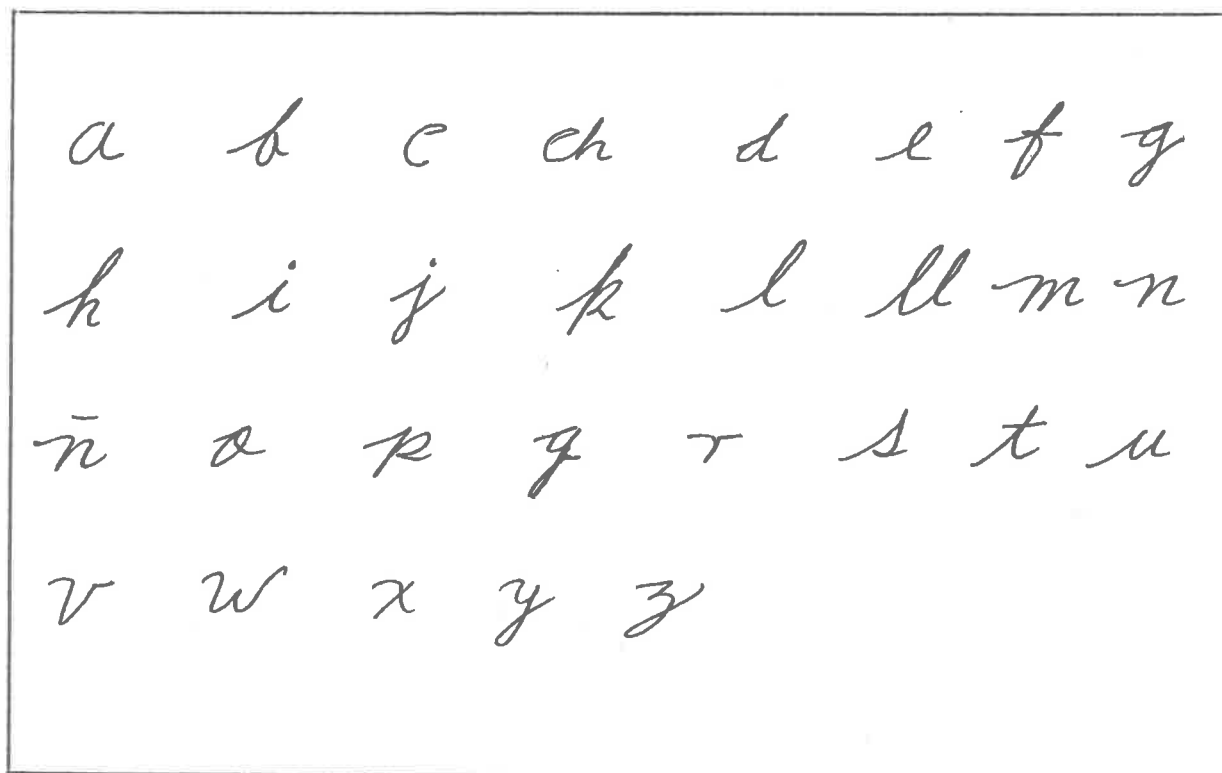 a b c ch d e f g
h i j k l ll m n
ñ o p q r s t u
v w x y z